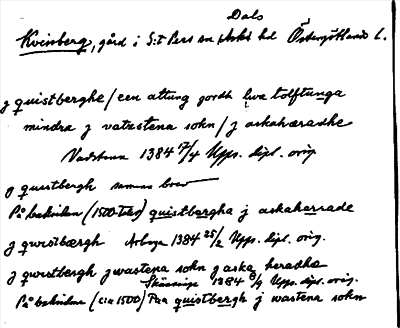 Dals
Kvisberg, gård i S:t Pers sn, Aska hd Östergötlands l.
j quistberghe / een attung jordh twa tolftunga
mindra j vatzstena sokn / j askahæradhe
Vadstena 1384 7/4 Upps. dipl. orig.
j quistbergh samma brev
På baksidan (1500-talet) quistbergha j askaherrade
j qwistbærgh Arboga 1384 25/2 Upps. dipl. orig.
j qwistbergh j wastena sokn j aska heradhe
Skänninge 1384 8/9 Upps. dipl. orig.
På baksidan (c:a 1500) Fraa quistbergh j wastena sokn